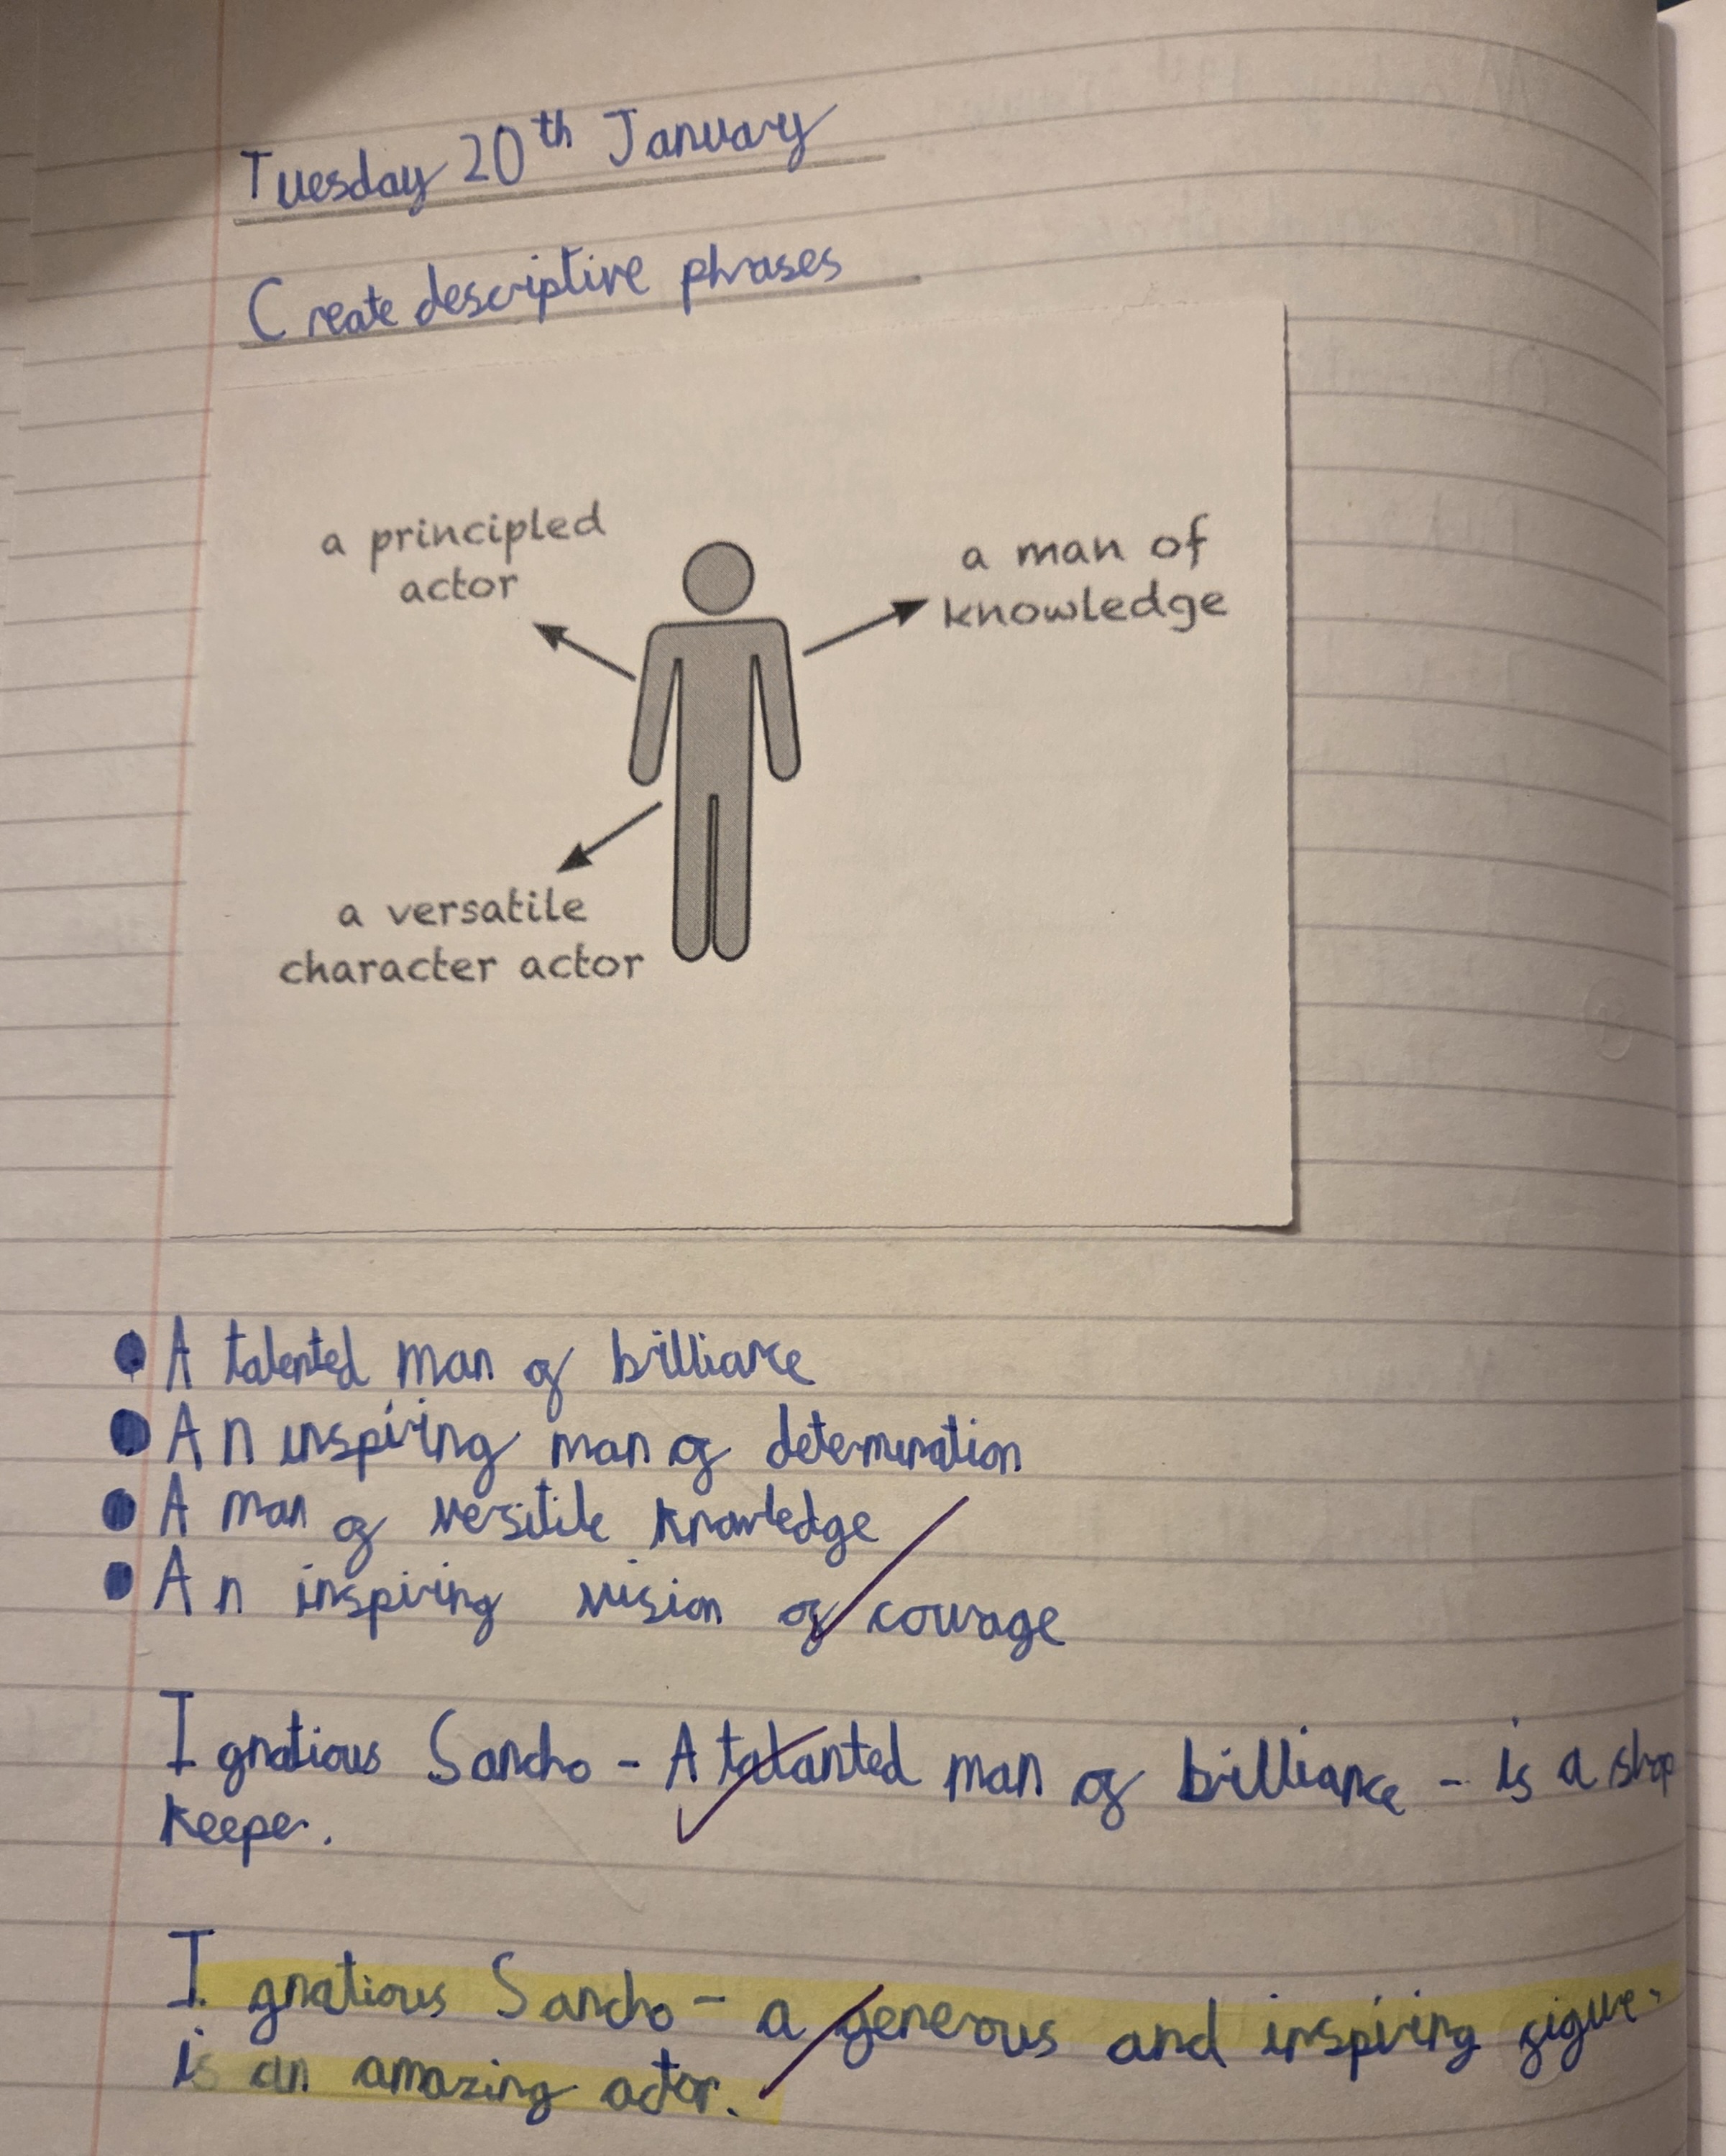 Tuesday 20th January
Create descriptive phrases
a principled
actor
a man of
knowledge
a versatile
character actor
• A talented man of brilliance
• An inspiring man of determination
• A man of versitile knowledge
• An inspiring vision of courage
Ignatious Sancho - A talanted man of brilliance - is a shop
keeper.
Ignatious Sancho - a generous and inspiring figure -
is an amazing actor.